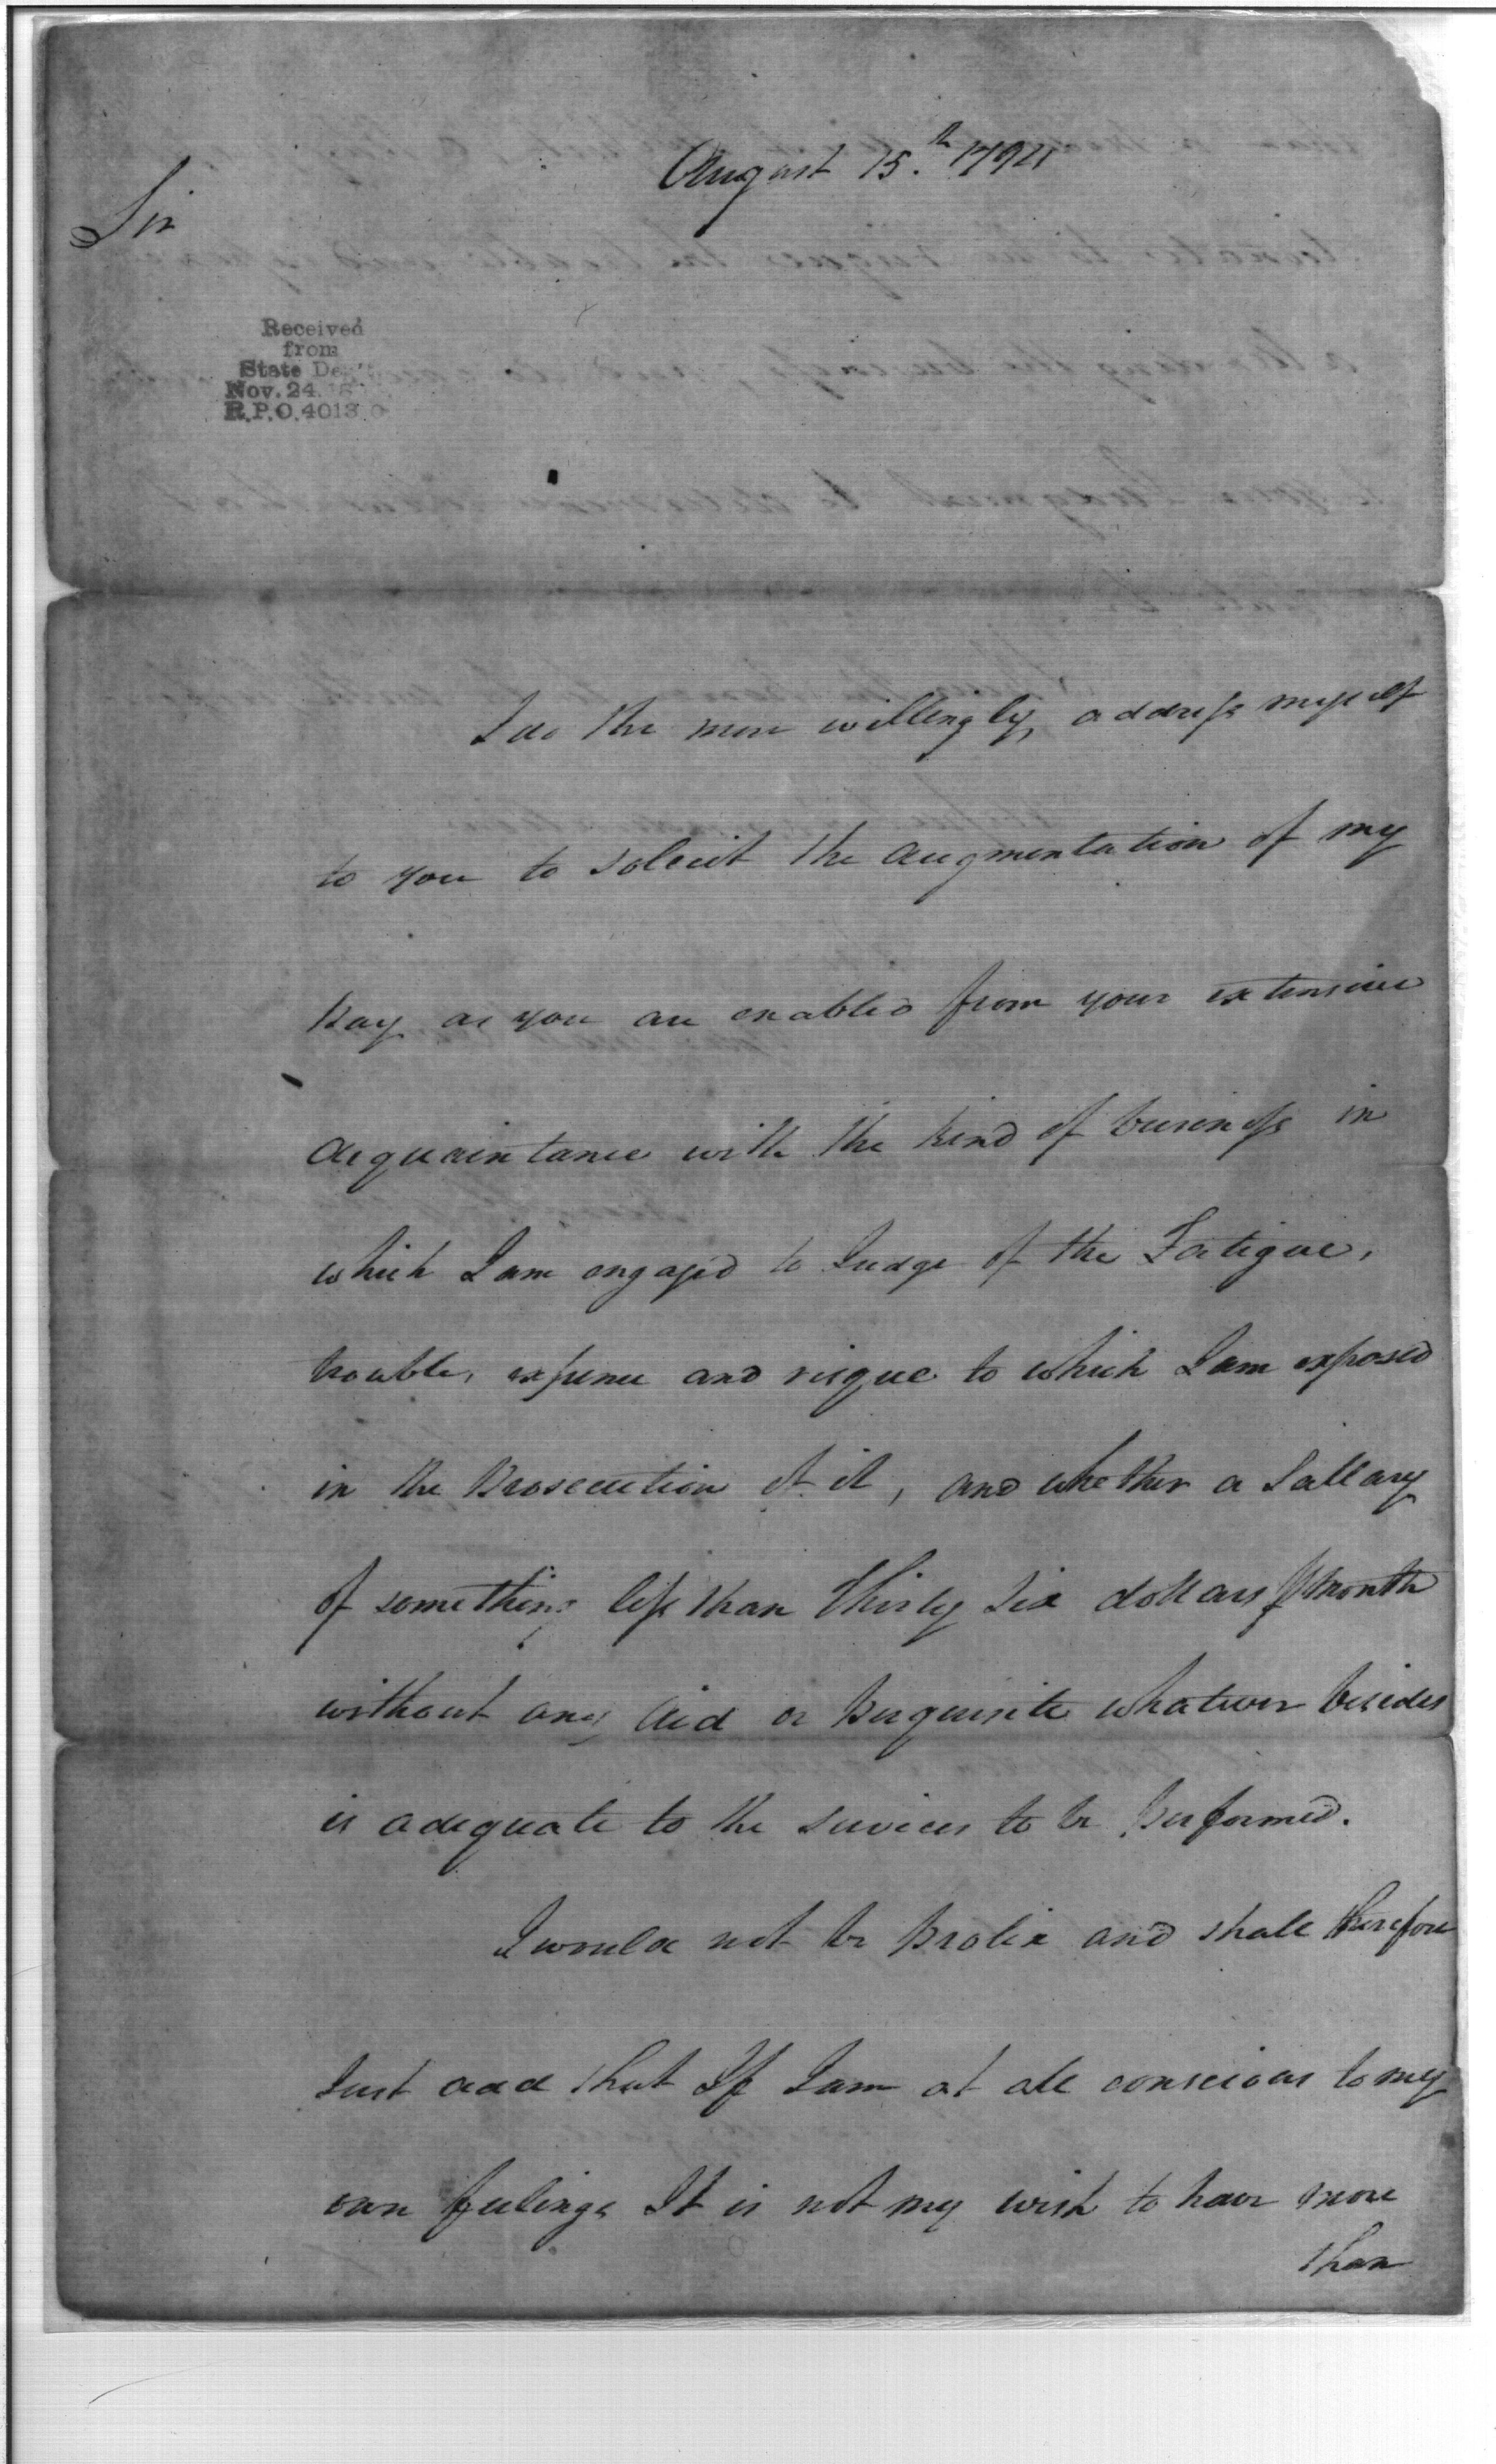 August 15.th 1794
Sir
Received
from
State De
Nov. 24.
R.P.O. 4013
I do the more willingly, address myself
to you to solicit the augmentation of my
Pay as you are enabled from your extensive
acquaintance with the kind of business in
which I am engaged to Judge of the Fatigue,
trouble, expence and risque to which I am exposed
in the Prosecution of it, and whether a Sallary
of something less than thirty six dollars ⅌ month
without any Aid or Perquisite whatever besides
is adequate to the services to be Performed.
I would not be Prolix and shall therefore
Just add that If I am at all conscious to my
own feelings It is not my wish to have more
than